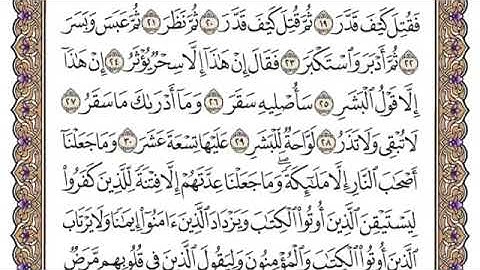 فَقُتِلَ كَيْفَ قَدَّرَ ۝١٩ ثُمَّ قُتِلَ كَيْفَ قَدَّرَ ۝٢٠ ثُمَّ نَظَرَ ۝٢١ ثُمَّ عَبَسَ وَبَسَرَ
۝٢٢ ثُمَّ أَدْبَرَ وَٱسْتَكْبَرَ ۝٢٣ فَقَالَ إِنْ هَٰذَآ إِلَّا سِحْرٌ يُؤْثَرُ ۝٢٤ إِنْ هَٰذَآ
إِلَّا قَوْلُ ٱلْبَشَرِ ۝٢٥ سَأُصْلِيهِ سَقَرَ ۝٢٦ وَمَآ أَدْرَىٰكَ مَا سَقَرُ ۝٢٧
لَا تُبْقِى وَلَا تَذَرُ ۝٢٨ لَوَّاحَةٌ لِّلْبَشَرِ ۝٢٩ عَلَيْهَا تِسْعَةَ عَشَرَ ۝٣٠ وَمَا جَعَلْنَآ
أَصْحَٰبَ ٱلنَّارِ إِلَّا مَلَٰٓئِكَةً ۙ وَمَا جَعَلْنَا عِدَّتَهُمْ إِلَّا فِتْنَةً لِّلَّذِينَ كَفَرُوا۟
لِيَسْتَيْقِنَ ٱلَّذِينَ أُوتُوا۟ ٱلْكِتَٰبَ وَيَزْدَادَ ٱلَّذِينَ ءَامَنُوٓا۟ إِيمَٰنًا ۙ وَلَا يَرْتَابَ
ٱلَّذِينَ أُوتُوا۟ ٱلْكِتَٰبَ وَٱلْمُؤْمِنُونَ ۙ وَلِيَقُولَ ٱلَّذِينَ فِى قُلُوبِهِم مَّرَضٌ